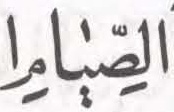 الصِّيٰامِ ا